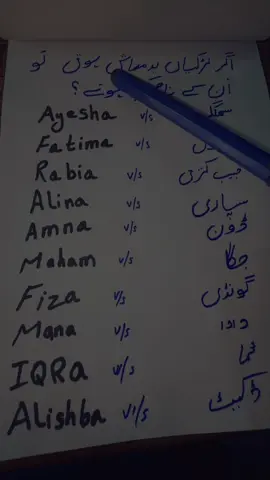 اگر لڑکیاں بدمعاش ہوتی تو
ان کے نام ہوتے؟
Ayesha v/s
Fatima v/s
Rabia v/s جیب کتری
Alina v/s سپاری
Amna v/s ڈون
Maham v/s جگا
Fiza v/s گونڈی
Mana v/s دادا
IQRA v/s
Alishba v/s ڈکیت